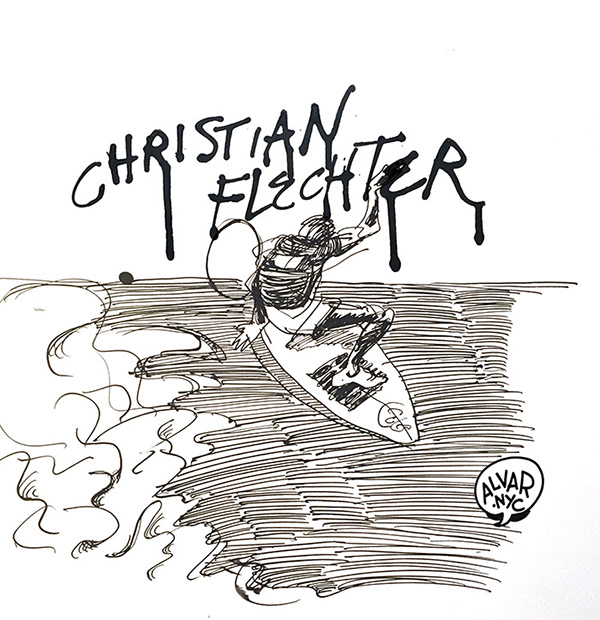 CHRISTIAN
FLECHTER
ALVAR
.NYC